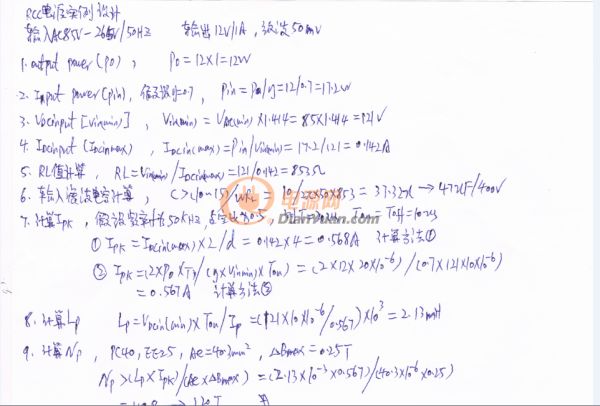 RCC电源实例设计
输入AC85V-265V/50HZ 输出12V/1A, 纹波50mV
1. output power (Po), Po=12×1=12W
2. Input power (pin), 假设η=0.7, Pin=Po/η=12/0.7=17.2W
3. Vdcinput [Vinmin], Vinmin=Vac(min)×1.414=85×1.414=121V
4. Idcinput (Idcinmax), Idcin(max)=Pin/Vinmin=17.2/121=0.142A
5. RL值计算, RL=Vinmin/Idcinmax=121/0.142=853Ω
6. 输入滤波电容计算, C>(10~15)/WRL=10/2×50×853=37.32u→47UF/400V
电源网
DianYuan.com
7. 计算Ipk, 假设频率为50KHZ, Ton=Toff=10us
① Ipk=Idcin(max)×2/d=0.142×4=0.568A 计算方法①
② Ipk=(2×Po×Tp)/(η×Vinmin×Ton)=(2×12×20×10⁻⁶)/(0.7×121×10×10⁻⁶)
=0.567A 计算方法②
8. 计算Lp Lp=Vdcin(min)×Ton/Ip=(121×10×10⁻⁶/0.567)×10³=2.13mH
9. 计算Np, PC40, EE25, Ae=40.3mm², ΔBmax=0.25T
Np>(Lp×Ipk)/(Ae×ΔBmax)=(2.13×10⁻³×0.567)/(40.3×10⁻⁶×0.25)